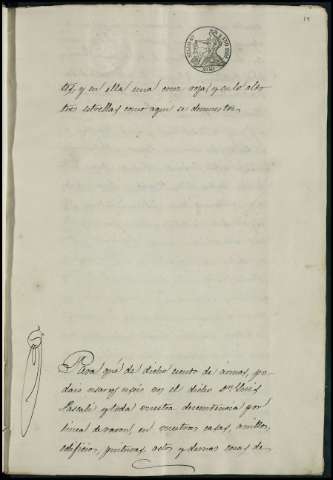 y en ella una cruz roja, y en lo alto
tres estrellas, como aqui se demuestra.
Para qué de dicho ciento de armas, po-
dais usar y useis vos el dicho Dn. Luis
Pascali y toda vuestra decendencia por
linea de varon, en vuestras casas, anillos,
edificios, pinturas, actos y demas cosas de